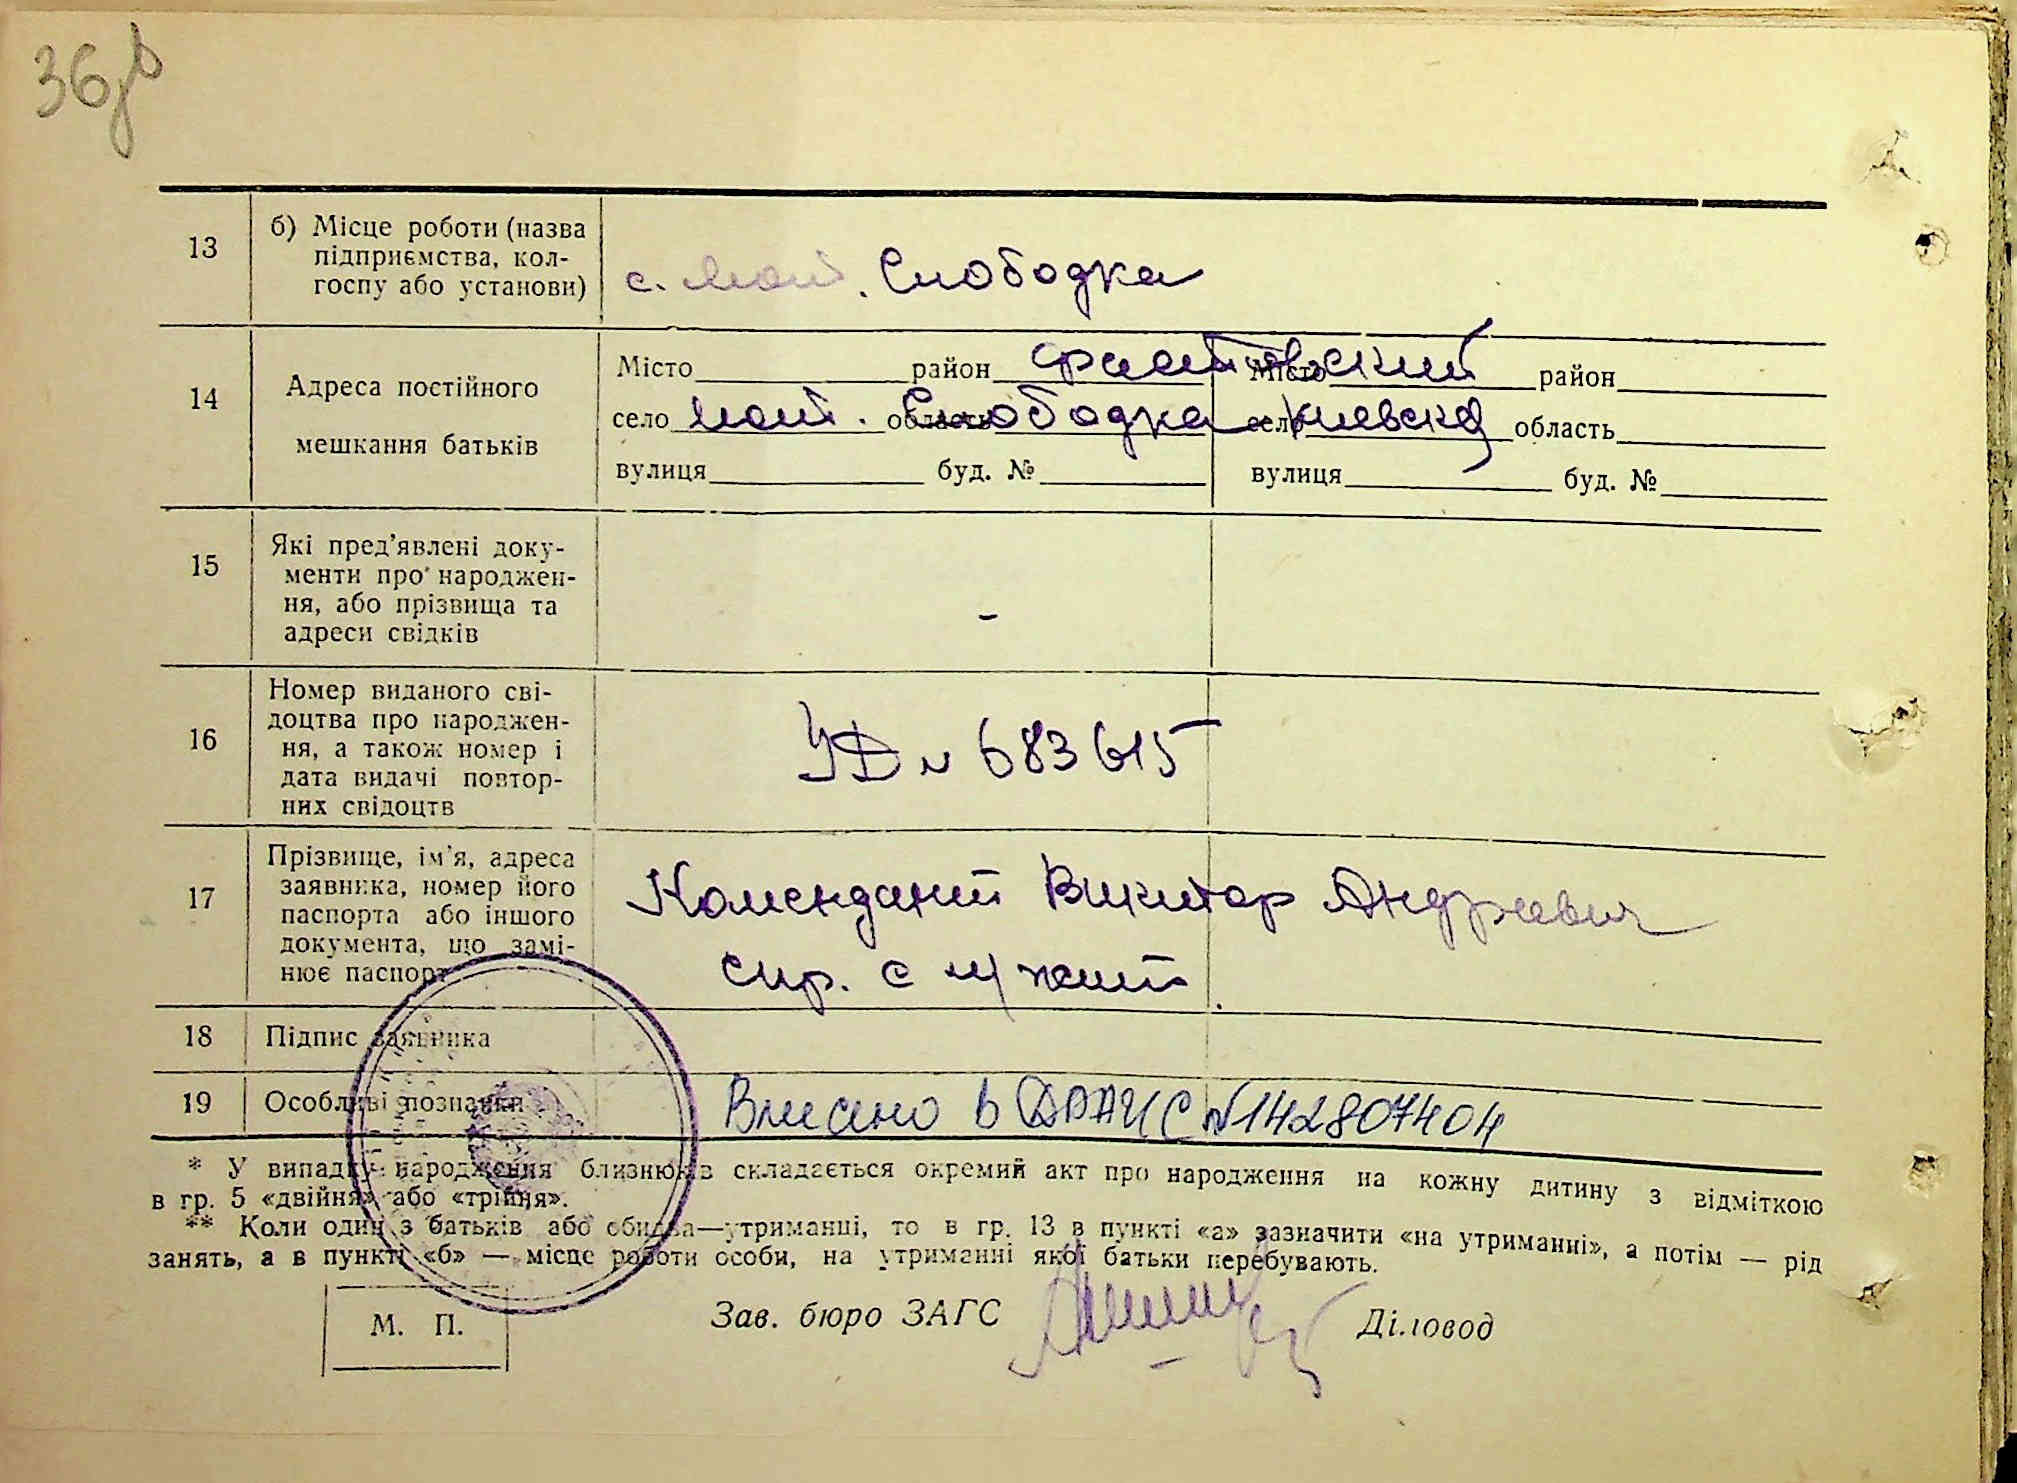 13
б) Місце роботи (назва
підприємства, кол-
госпу або установи)
с. Мот. Слободка
14
Адреса постійного
мешкання батьків
Місто район Фастовский Місто район
село Мот. Слободка область Киевска село область
вулиця буд. № вулиця буд. №
15
Які пред'явлені доку-
менти про народжен-
ня, або прізвища та
адреси свідків
-
16
Номер виданого сві-
доцтва про народжен-
ня, а також номер і
дата видачі повтор-
них свідоцтв
УД № 683615
17
Прізвище, ім'я, адреса
заявника, номер його
паспорта або іншого
документа, що замі-
нює паспорт
Комендант Виктор Андреевич
спр. с м/жит.
18
Підпис заявника
19
Особливі позначки
Внесено в ДРАЦС №142807404
* У випадку народження близнюків складається окремий акт про народження на кожну дитину з відміткою
в гр. 5 «двійня» або «трійня».
** Коли один з батьків або обидва—утриманці, то в гр. 13 в пункті «а» зазначити «на утриманні», а потім — рід
занять, а в пункті «б» — місце роботи особи, на утриманні якої батьки перебувають.
М. П.
Зав. бюро ЗАГС Діловод